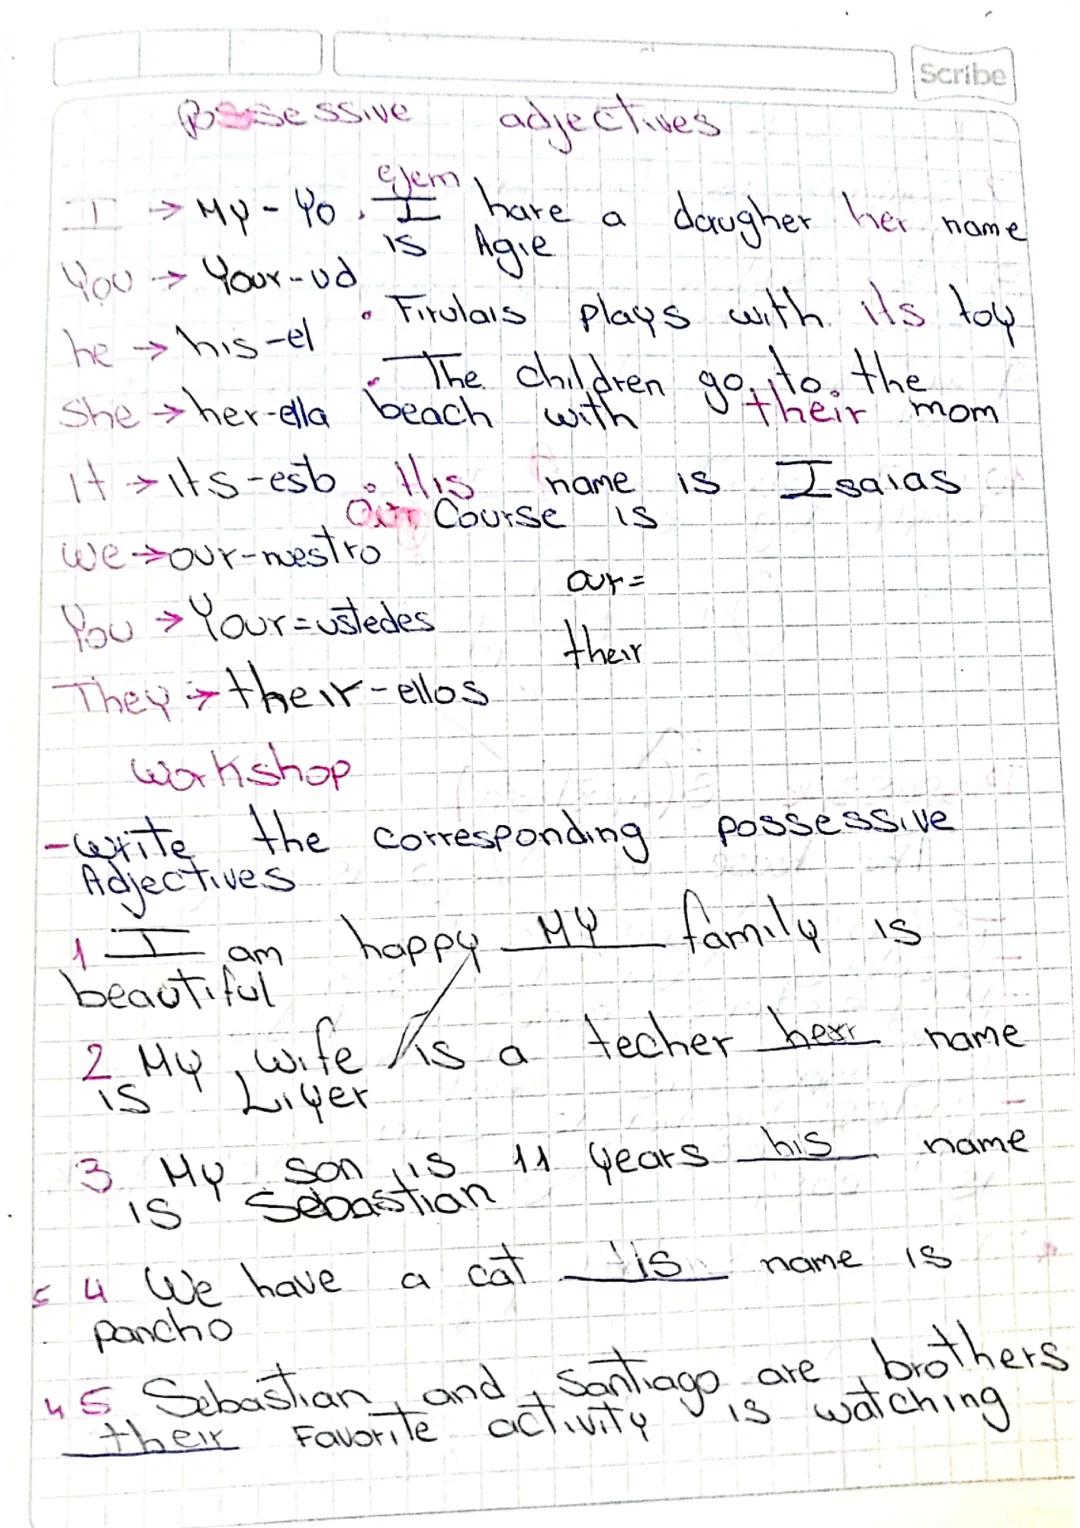 Scribe
possessive adjectives
ejem
I → My - Yo . I have a daugher her name
is Agie
You → Your - ud
. Firulais plays with its toy
he → his - el
. The children go to the
She → her - ella beach with their mom
It → its - esto . His name is Isaias
Our Course is
We → our - nuestro
our =
You → Your = ustedes
their
They → their - ellos
Workshop
- Write the corresponding possessive
Adjectives
1 I am happy My family is
beautiful
2 My wife is a techer her name
is Liyer
3 My son is 11 years his name
is Sebastian
4 We have a cat name is
pancho
4 5 Sebastian and Santiago are brothers
their Favorite activity is watching